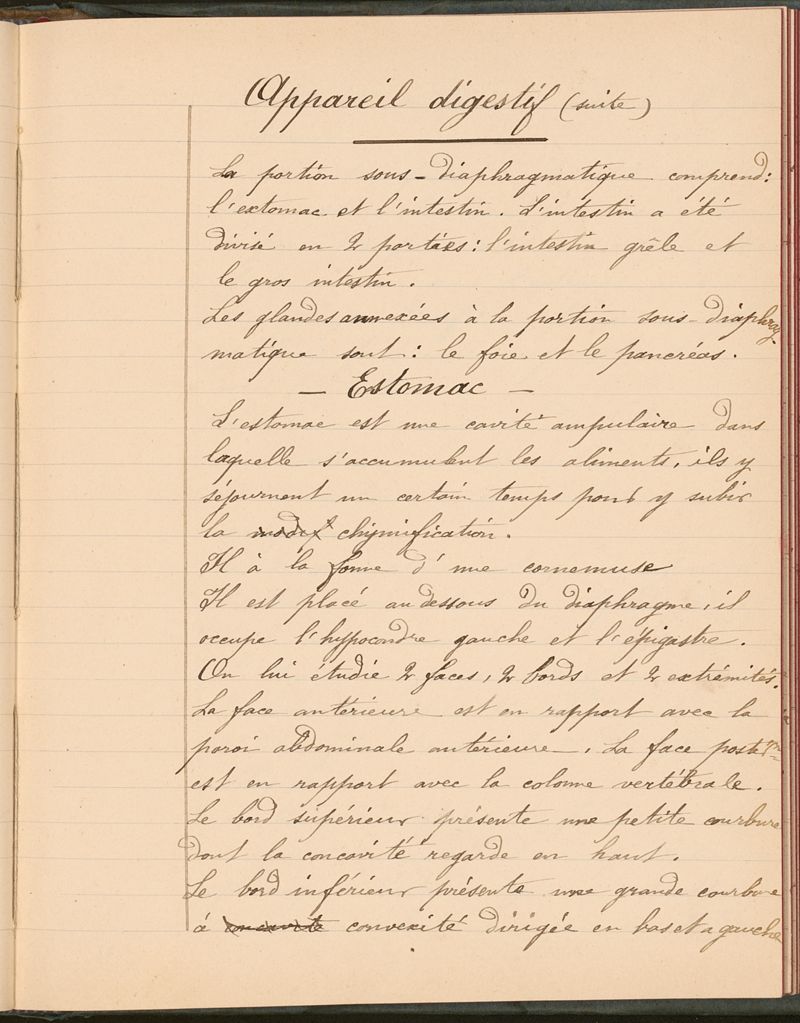 Appareil digestif (suite)
La portion sous-diaphragmatique comprend:
l'extomac et l'intestin. L'intestin a été
divisé en 2 parties: l'intestin grêle et
le gros intestin.
Les glandes annexées à la portion sous-diaphrag
matique sont: le foie et le pancréas.
— Estomac —
L'estomac est une cavité ampulaire dans
laquelle s'accumulent les aliments, ils y
séjournent un certain temps pour y subir
la modif chymification.
Il à la forme d'une cornemuse
Il est placé au dessous du diaphragme, il
occupe l'hypocondre gauche et l'épigastre.
On lui étudie 2 faces, 2 bords et 2 extrémités.
La face antérieure est en rapport avec la
paroi abdominale antérieure. La face postre
est en rapport avec la colonne vertébrale.
Le bord supérieur présente une petite courbure
dont la concavité regarde en haut.
Le bord inférieur présente une grande courbure
à concavité convexité dirigée en bas et a gauche